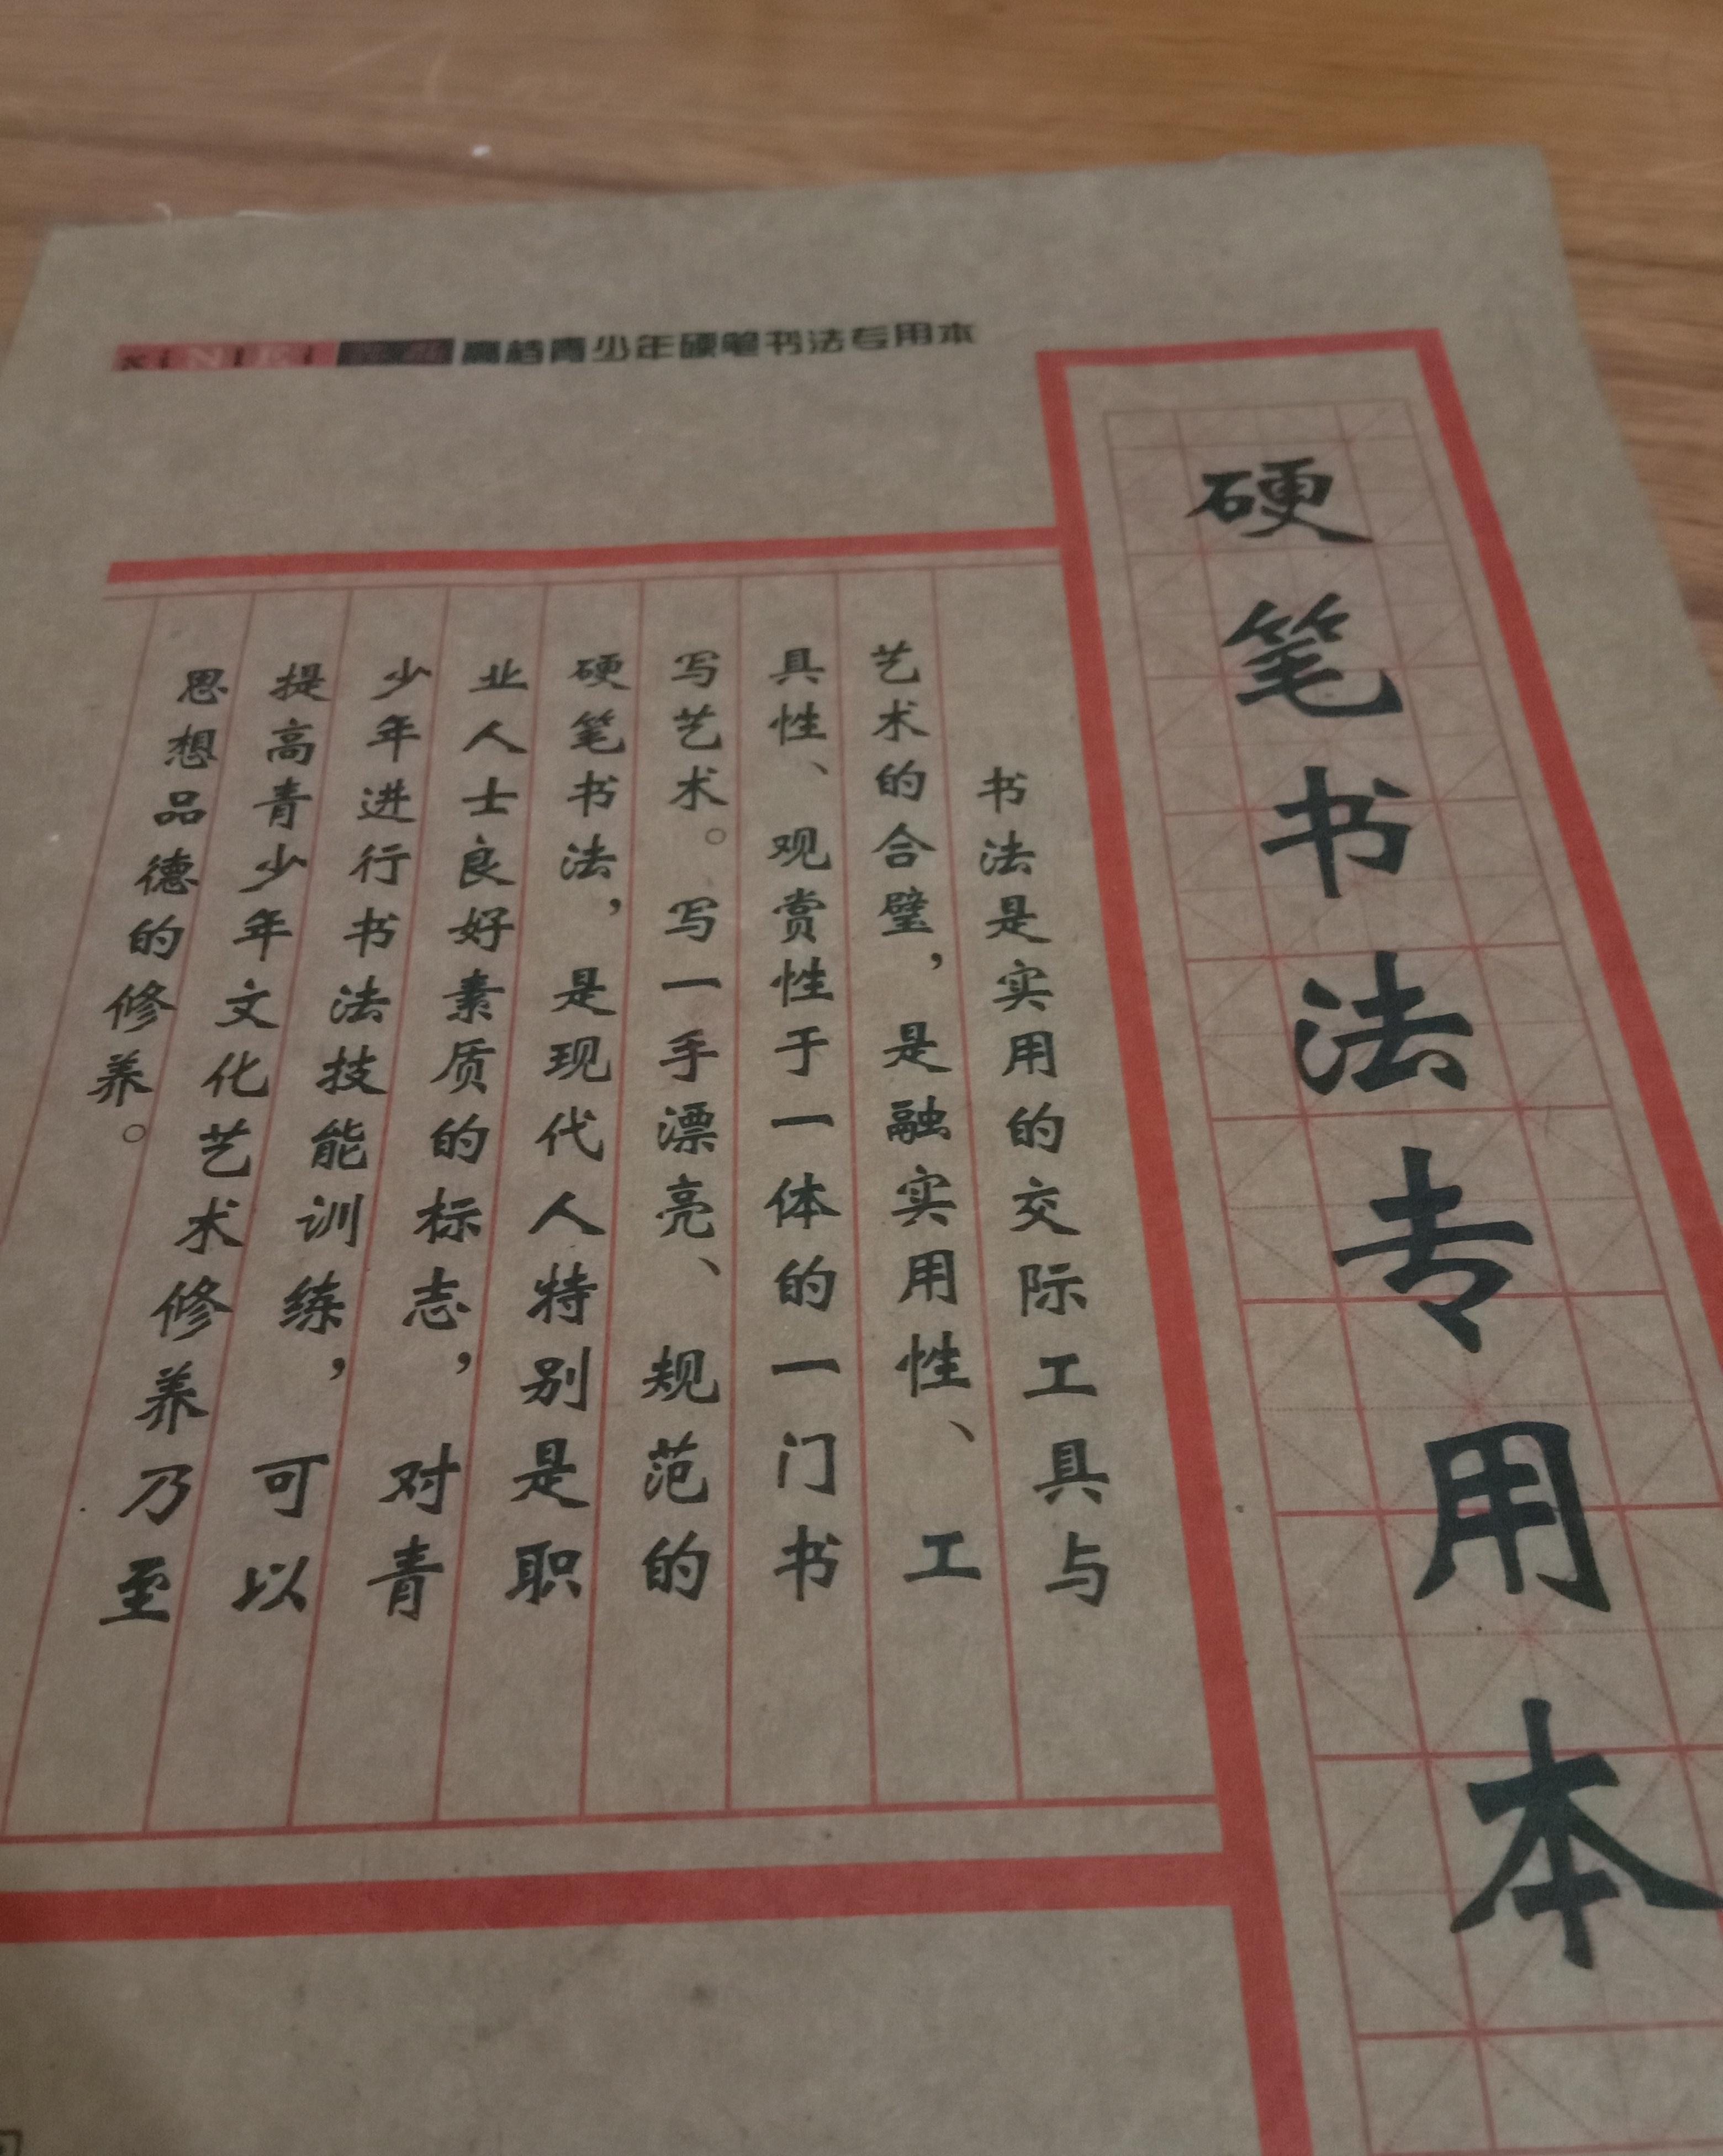 KiNIKi
高档青少年硬笔书法专用本
硬笔书法专用本
书法是实用的交际工具与
艺术的合璧，是融实用性、工
具性、观赏性于一体的一门书
写艺术。写一手漂亮、规范的
硬笔书法，是现代人特别是职
业人士良好素质的标志，对青
少年进行书法技能训练，可以
提高青少年文化艺术修养乃至
思想品德的修养。